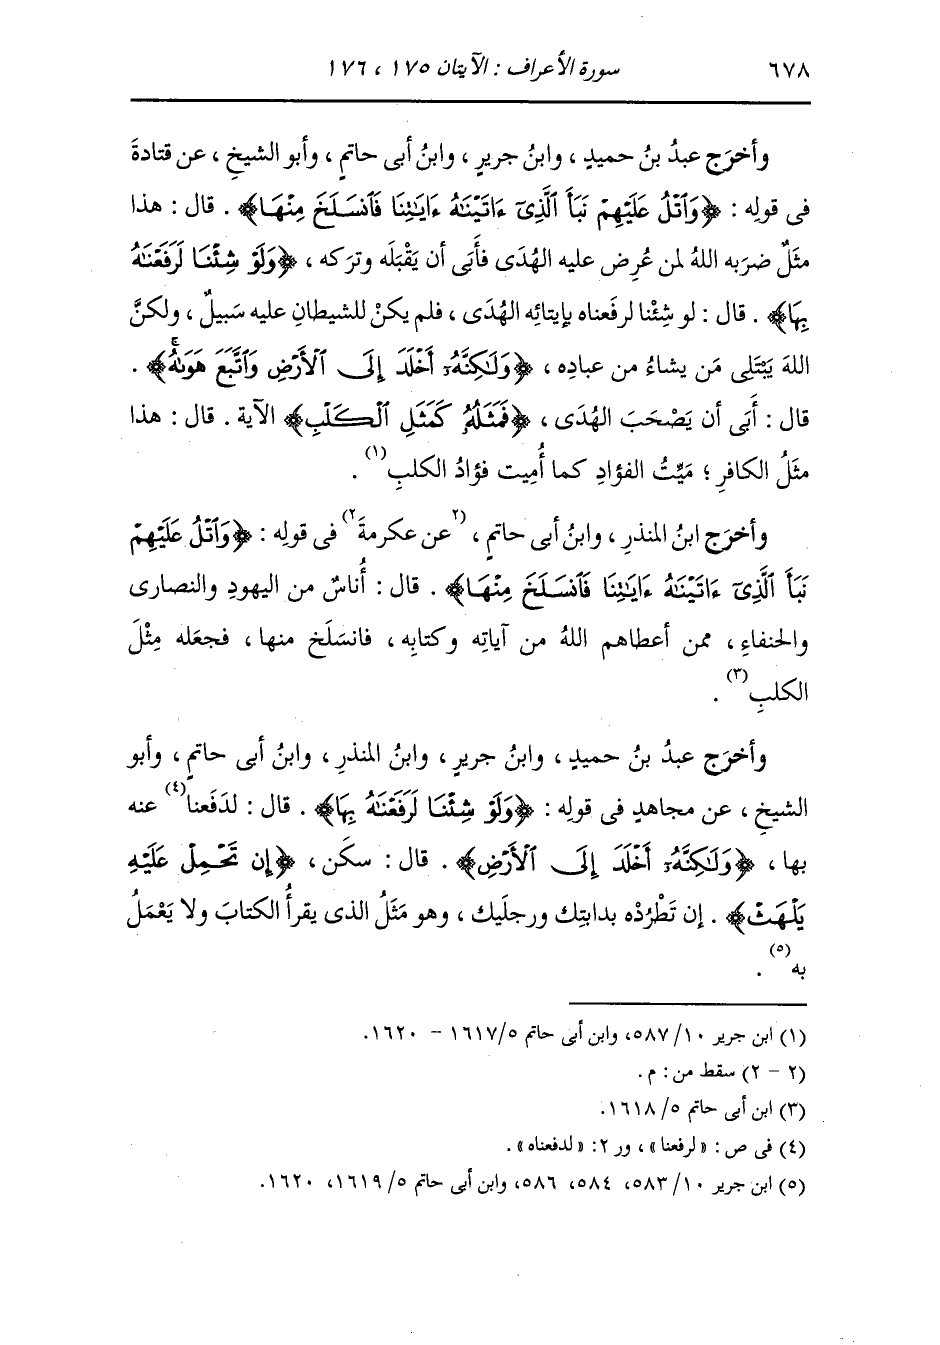 ٦٧٨ سورة الأعراف : الآيتان ١٧٥ ، ١٧٦
وأخرَج عبدُ بنُ حميدٍ ، وابنُ جريرٍ ، وابنُ أبى حاتمٍ ، وأبو الشيخِ ، عن قتادةَ
فى قولِه : ﴿وَٱتْلُ عَلَيْهِمْ نَبَأَ ٱلَّذِىٓ ءَاتَيْنَٰهُ ءَايَٰتِنَا فَٱنسَلَخَ مِنْهَا﴾ . قال : هذا
مثَلٌ ضرَبه اللهُ لمن عُرِض عليه الهُدَى فأَبَى أن يَقْبَلَه وترَكه ، ﴿وَلَوْ شِئْنَا لَرَفَعْنَٰهُ
بِهَا﴾ . قال : لو شِئْنا لرفَعناه بإيتائِه الهُدَى ، فلم يكنْ للشيطانِ عليه سَبيلٌ ، ولكنَّ
اللهَ يَبْتَلِى مَن يشاءُ من عبادِه ، ﴿وَلَٰكِنَّهُۥٓ أَخْلَدَ إِلَى ٱلْأَرْضِ وَٱتَّبَعَ هَوَىٰهُۚ﴾ .
قال : أَبَى أن يَصْحَبَ الهُدَى ، ﴿فَمَثَلُهُۥ كَمَثَلِ ٱلْكَلْبِ﴾ الآية . قال : هذا
مثَلُ الكافرِ ؛ مَيِّتُ الفؤادِ كما أُمِيت فؤادُ الكلبِ(١) .
وأخرَج ابنُ المنذرِ ، وابنُ أبى حاتمٍ ، (٢عن عكرمةَ٢) فى قولِه : ﴿وَٱتْلُ عَلَيْهِمْ
نَبَأَ ٱلَّذِىٓ ءَاتَيْنَٰهُ ءَايَٰتِنَا فَٱنسَلَخَ مِنْهَا﴾ . قال : أُناسٌ من اليهودِ والنصارى
والحنفاءِ ، ممن أعطاهم اللهُ من آياتِه وكتابِه ، فانسَلَخ منها ، فجعَله مِثْلَ
الكلبِ(٣) .
وأخرَج عبدُ بنُ حميدٍ ، وابنُ جريرٍ ، وابنُ المنذرِ ، وابنُ أبى حاتمٍ ، وأبو
الشيخِ ، عن مجاهدٍ فى قولِه : ﴿وَلَوْ شِئْنَا لَرَفَعْنَٰهُ بِهَا﴾ . قال : لدَفَعنا(٤) عنه
بها ، ﴿وَلَٰكِنَّهُۥٓ أَخْلَدَ إِلَى ٱلْأَرْضِ﴾ . قال : سكَن ، ﴿إِن تَحْمِلْ عَلَيْهِ
يَلْهَثْ﴾ . إن تَطْرُدْه بدابتِك ورجلَيك ، وهو مَثَلُ الذى يقرأُ الكتابَ ولا يَعْمَلُ
به(٥) .
(١) ابن جرير ١٠/ ٥٨٧، وابن أبى حاتم ٥/ ١٦١٧ - ١٦٢٠.
(٢ - ٢) سقط من : م .
(٣) ابن أبى حاتم ٥/ ١٦١٨.
(٤) فى ص : «لرفعنا» ، ور ٢: «لدفعناه» .
(٥) ابن جرير ١٠/ ٥٨٣، ٥٨٤، ٥٨٦، وابن أبى حاتم ٥/ ١٦١٩، ١٦٢٠.